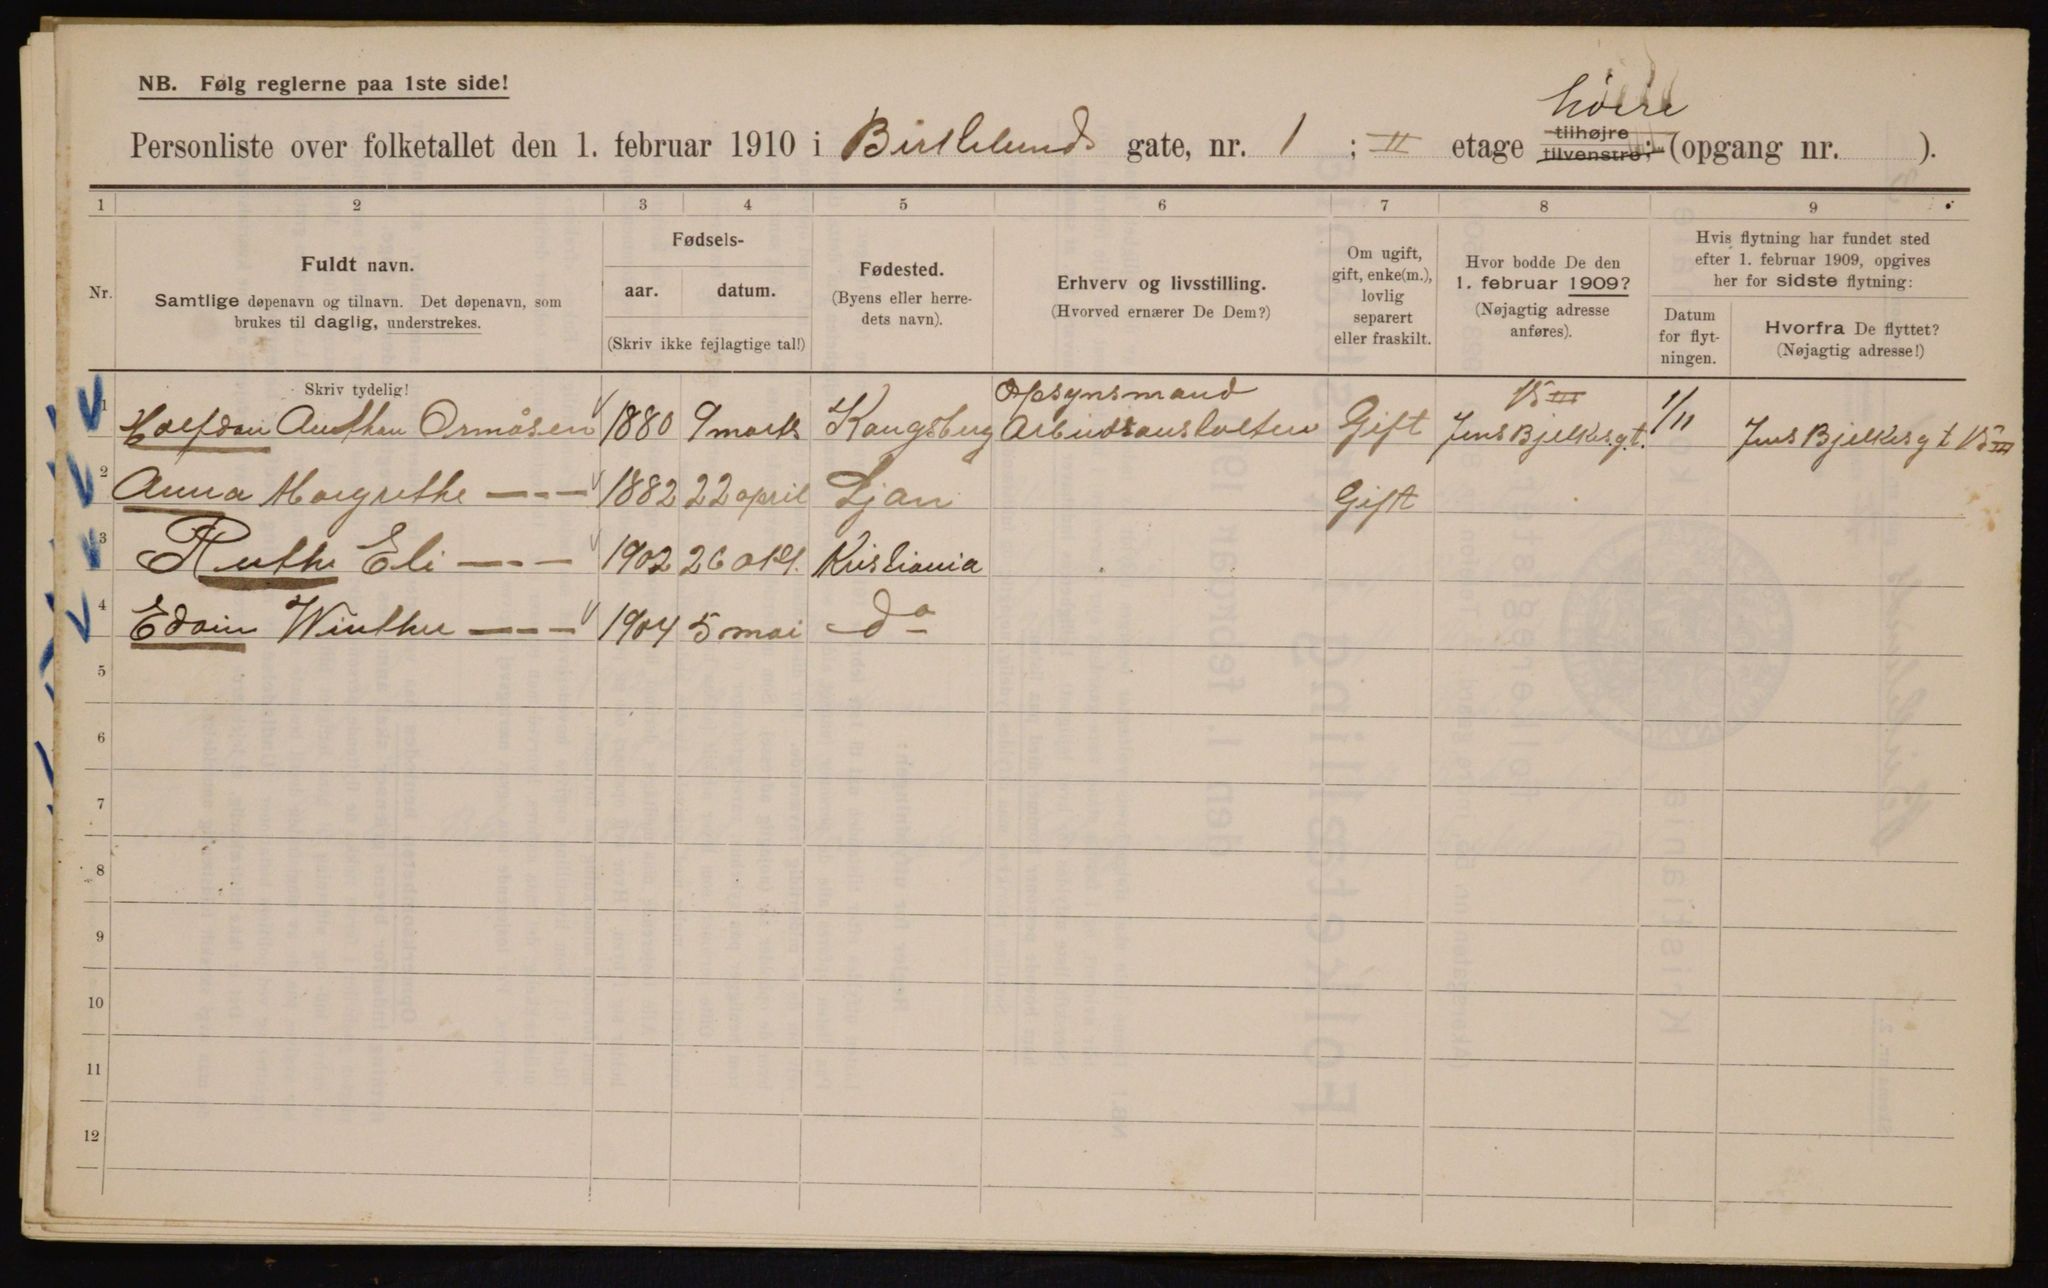 NB. Følg reglerne paa 1ste side!
høire
Personliste over folketallet den 1. februar 1910 i Birkelunds gate, nr. 1 ; II etage tilhøjre tilvenstre; (opgang nr. ).
1 2 3 4 5 6 7 8 9
Nr.
Fuldt navn.
Samtlige døpenavn og tilnavn. Det døpenavn, som
brukes til daglig, understrekes.
Fødsels-
aar. datum.
(Skriv ikke fejlagtige tal!)
Fødested.
(Byens eller herre-
dets navn).
Erhverv og livsstilling.
(Hvorved ernærer De Dem?)
Om ugift,
gift, enke(m.),
lovlig
separert
eller fraskilt.
Hvor bodde De den
1. februar 1909?
(Nøjagtig adresse
anføres).
Hvis flytning har fundet sted
efter 1. februar 1909, opgives
her for sidste flytning:
Datum
for flyt-
ningen.
Hvorfra De flyttet?
(Nøjagtig adresse!)
Skriv tydelig!
Opsynsmand 15 III
1 Halfdan Anthon Ormåsen 1880 9 marts Kongsberg Arbeidsanstalten Gift Jens Bjelkesgt. 1/11 Jens Bjelkesgt 15 III
2 Anna Margrethe — — — 1882 22 april Ljan Gift
3 Ruth Eli — — — 1902 26 okt. Kristiania
4 Edvin Winther — — — 1904 5 mai do
5
6
7
8
9
10
11
12